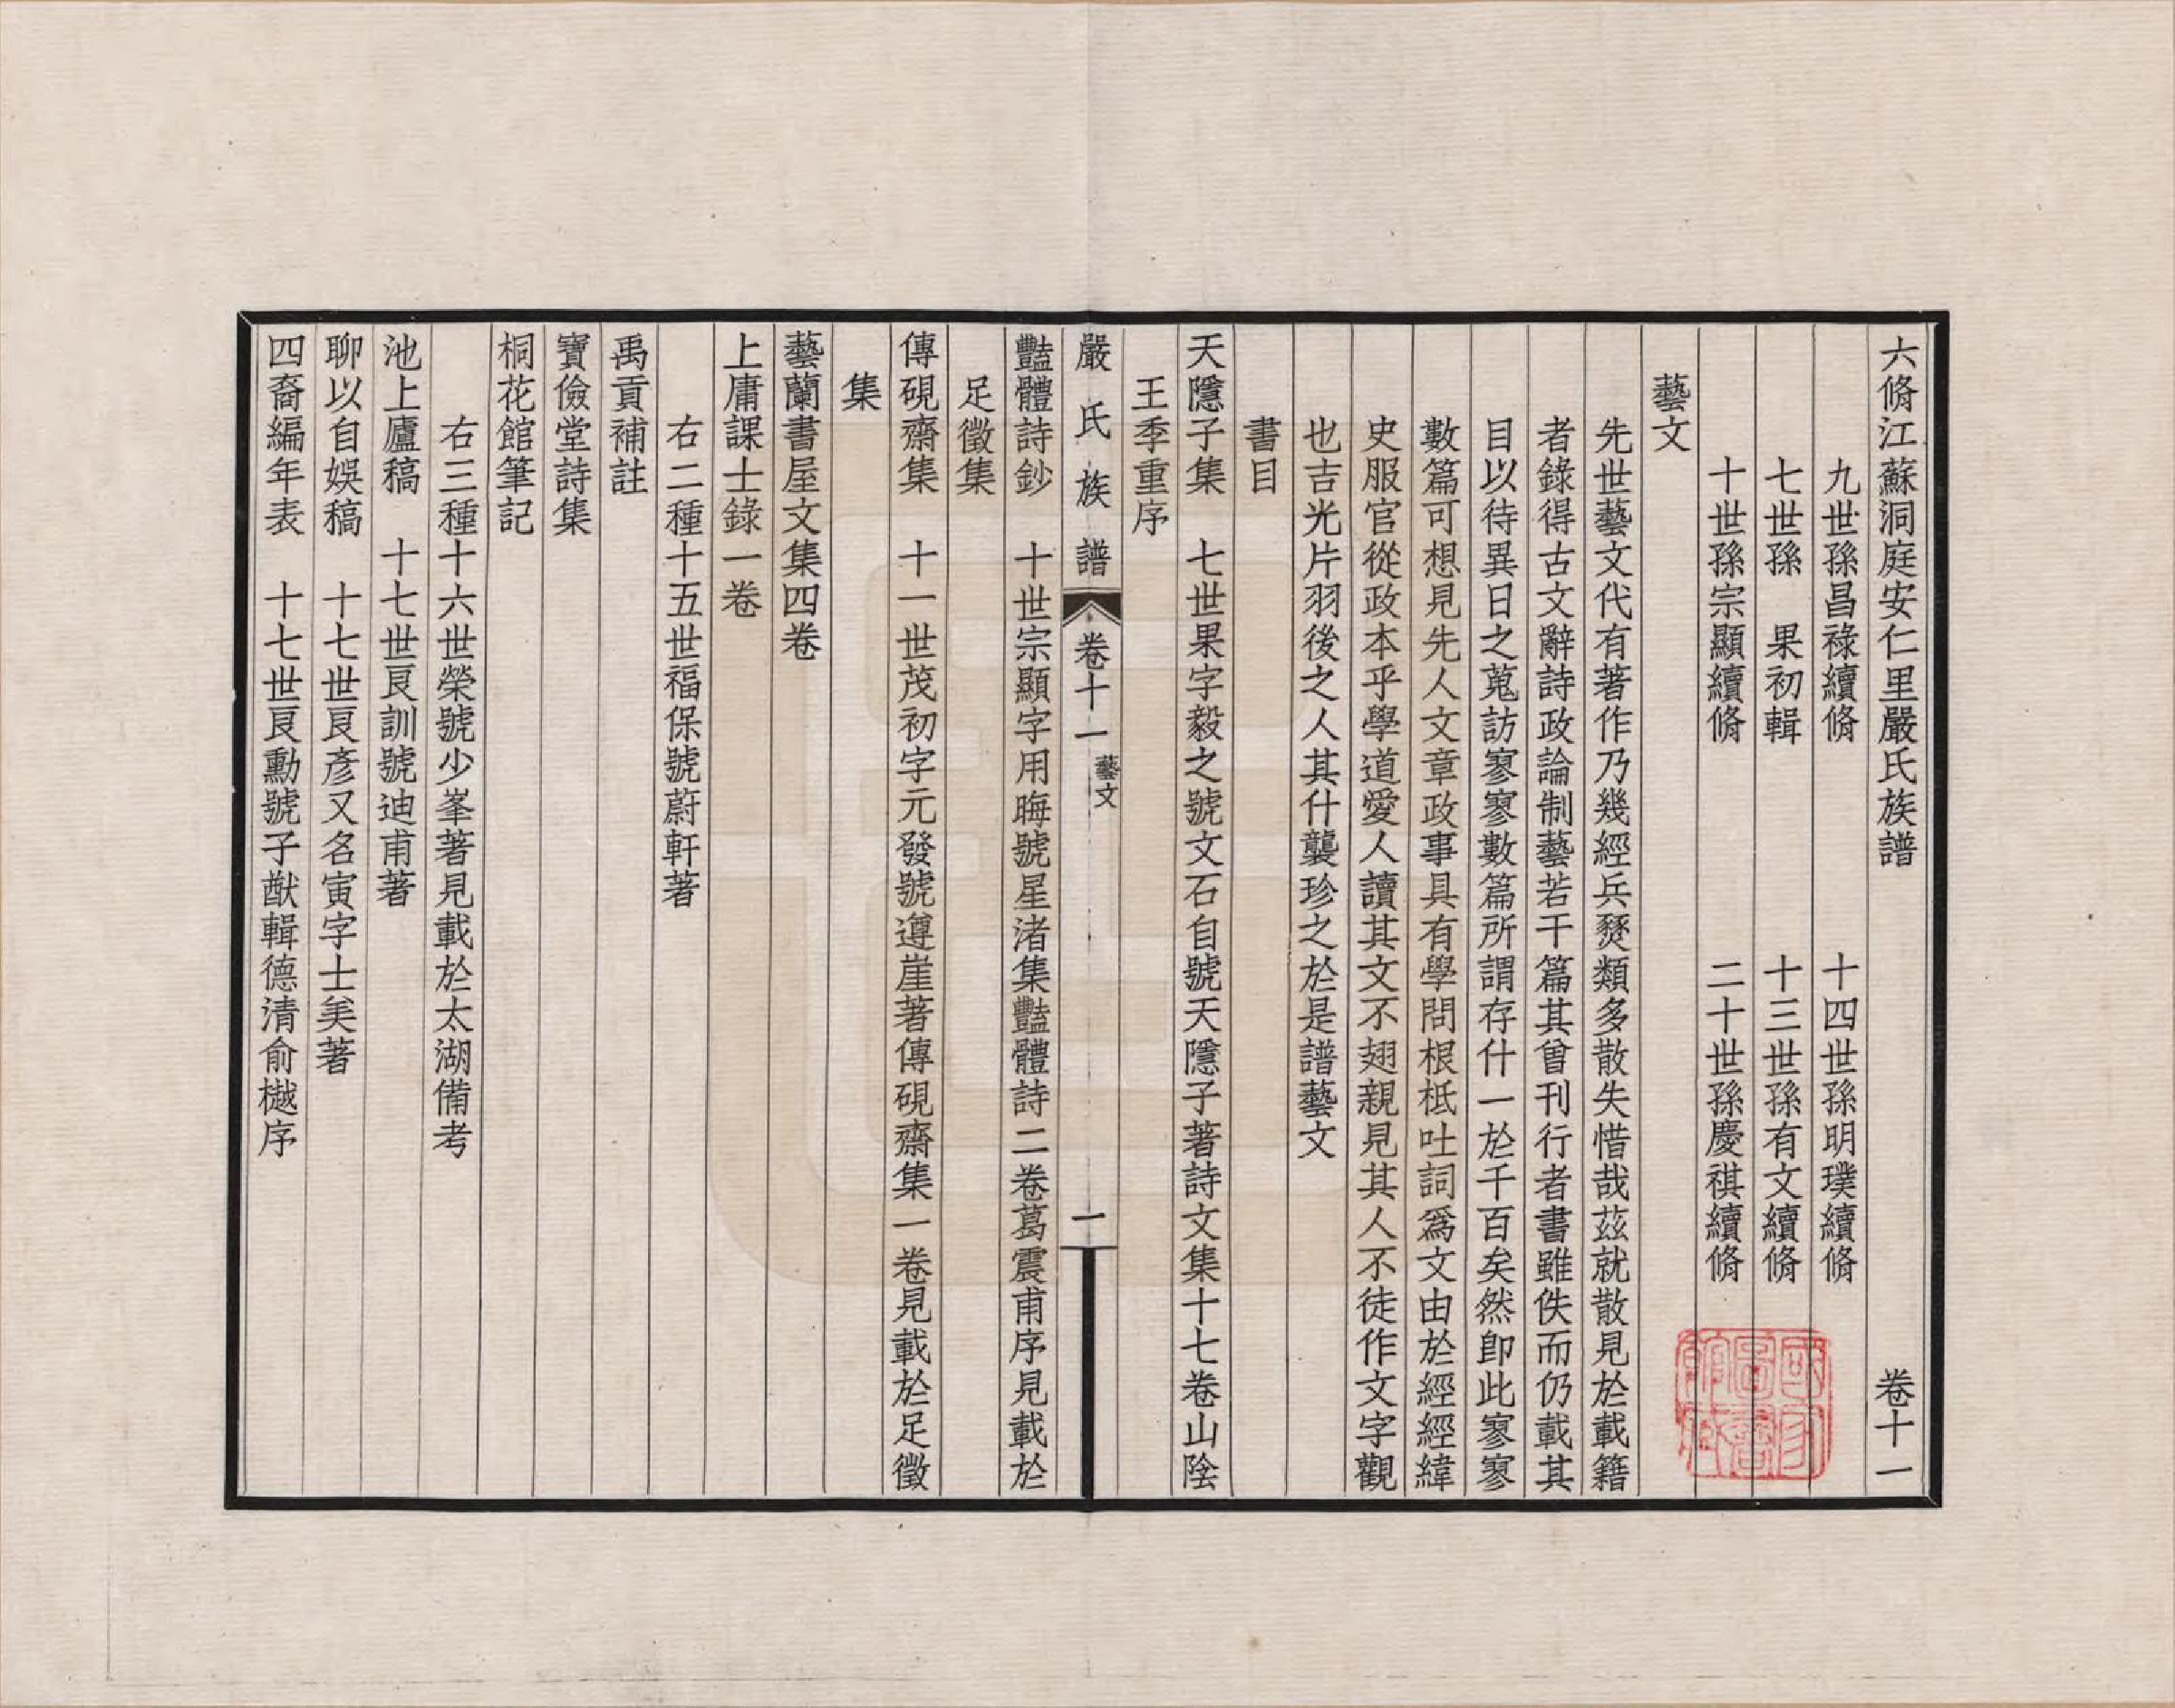 六脩江蘇洞庭安仁里嚴氏族譜　卷十一
九世孫昌祿續脩　十四世孫明璞續脩
七世孫　果初輯　十三世孫有文續脩
十世孫宗顯續脩　二十世孫慶祺續脩
藝文
先世藝文代有著作乃幾經兵燹類多散失惜哉茲就散見於載籍
者錄得古文辭詩政論制藝若干篇其曾刊行者書雖佚而仍載其
目以待異日之蒐訪寥寥數篇所謂存什一於千百矣然卽此寥寥
數篇可想見先人文章政事具有學問根柢吐詞爲文由於經經緯
史服官從政本乎學道愛人讀其文不翅親見其人不徒作文字觀
也吉光片羽後之人其什襲珍之於是譜藝文
書目
天隱子集　七世果字毅之號文石自號天隱子著詩文集十七卷山陰
王季重序
嚴氏族譜　卷十一　藝文　一
豔體詩鈔　十世宗顯字用晦號星渚集豔體詩二卷葛震甫序見載於
足徵集
傳硯齋集　十一世茂初字元發號遵崖著傳硯齋集一卷見載於足徵
集
藝蘭書屋文集四卷
上庸課士錄一卷
右二種十五世福保號蔚軒著
禹貢補註
寶儉堂詩集
桐花館筆記
右三種十六世榮號少峯著見載於太湖備考
池上廬稿　十七世良訓號迪甫著
聊以自娛稿　十七世良彥又名寅字士美著
四裔編年表　十七世良勳號子猷輯德清俞樾序
國家圖書館藏